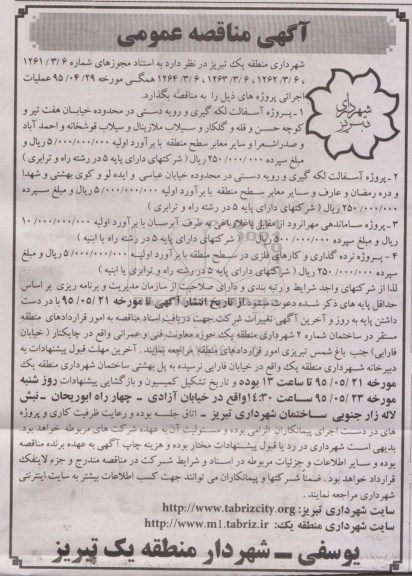 آگهی مناقصه عمومی
شهرداری تبریز
شهرداری منطقه یک تبریز در نظر دارد به استناد مجوزهای شماره ۱۲۶۱/۳/۶
، ۱۲۶۲/۳/۶ ، ۱۲۶۳/۳/۶ ، ۱۲۶۴/۳/۶ همگی مورخه ۹۵/۰۴/۲۹ عملیات
اجرائی پروژه های ذیل را به مناقصه بگذارد.
۱- پروژه آسفالت لکه گیری و رویه دستی در محدوده خیابان هفت تیر و
کوچه حسن و قله و گلکار و سیلاب ملازینال و سیلاب قوشخانه و احمد آباد
و صدراشعرا و سایر معابر سطح منطقه با برآورد اولیه ۵/۰۰۰/۰۰۰/۰۰۰ ریال و
مبلغ سپرده ۲۵۰/۰۰۰/۰۰۰ ریال ( شرکتهای دارای پایه ۵ در رشته راه و ترابری )
۲- پروژه آسفالت لکه گیری و رویه دستی در محدوده خیابان عباسی و ایده لو و کوی بهشتی و شهدا
و دره رمضان و عارف و سایر معابر سطح منطقه با برآورد اولیه ۵/۰۰۰/۰۰۰/۰۰۰ ریال و مبلغ سپرده
۲۵۰/۰۰۰/۰۰۰ ریال ( شرکتهای دارای پایه ۵ در رشته راه و ترابری )
۳- پروژه ساماندهی مهرانرود از مقابل باغلارباغی به طرف آبرسان با برآورد اولیه ۱۰/۰۰۰/۰۰۰/۰۰۰
ریال و مبلغ سپرده ۵۰۰/۰۰۰/۰۰۰ ریال ( شرکتهای دارای پایه ۵ در رشته راه یا ابنیه )
۴- پروژه نرده گذاری و کارهای فلزی در سطح منطقه با برآورد اولیه ۵/۰۰۰/۰۰۰/۰۰۰ ریال و مبلغ
سپرده ۲۵۰/۰۰۰/۰۰۰ ریال ( شرکتهای دارای پایه ۵ در رشته راه و ترابری یا ابنیه )
لذا از شرکتهای واجد شرایط و رتبه بندی و دارای صلاحیت از سازمان مدیریت و برنامه ریزی بر اساس
حداقل پایه های ذکر شده دعوت میشود از تاریخ انتشار آگهی تا مورخه ۹۵/۰۵/۲۱ با در دست
داشتن پایه به روز و آخرین آگهی تغییرات شرکت جهت دریافت اسناد مناقصه به امور قراردادهای منطقه
مستقر در ساختمان شماره ۲ شهرداری منطقه یک حوزه معاونت فنی و عمرانی واقع در چاپکنار ( خیابان
فارابی) جنب باغ شمس تبریزی امور قراردادهای منطقه مراجعه نمایند . آخرین مهلت قبول پیشنهادات به
دبیرخانه شهرداری منطقه یک واقع در خیابان فارابی نرسیده به پل بهشتی ساختمان شهرداری منطقه یک
مورخه ۹۵/۰۵/۲۱ تا ساعت ۱۳ بوده و تاریخ تشکیل کمیسیون و بازگشایی پیشنهادات روز شنبه
مورخه ۹۵/۰۵/۲۳ ساعت ۱۴:۳۰ واقع در خیابان آزادی - چهار راه ابوریحان - نبش
لاله زار جنوبی - ساختمان شهرداری تبریز - اتاق جلسه بوده و رعایت ظرفیت کاری و پروژه
های در دست اجرای پیمانکاران الزامی بوده و مسئولیت آن به عهده شرکت های مربوطه خواهد بود.
بدیهی است شهرداری در رد یا قبول پیشنهادات مختار بوده و هزینه چاپ آگهی به عهده برنده مناقصه
بوده و سایر اطلاعات و جزئیات مربوطه در اسناد و شرایط شرکت در مناقصه مندرج و جزء لاینفک
قرارداد خواهد بود . ضمناً شرکتها و پیمانکاران می توانند جهت کسب اطلاعات بیشتر به سایت اینترنتی
شهرداری مراجعه نمایند .
سایت شهرداری تبریز: http://www.tabrizcity.org
سایت شهرداری منطقه یک: http://www.m1.tabriz.ir
یوسفی - شهردار منطقه یک تبریز